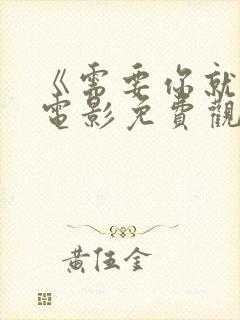 《需要你就
電影免費觀
黃伍金